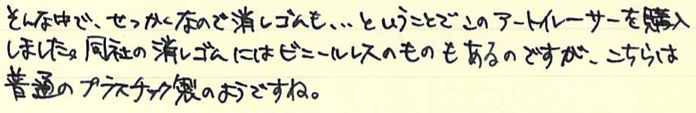 そんな中で、せっかくなので消しゴムも…ということでこのアートイレーサーを購入
しました。同社の消しゴムにはビニールレスのものもあるのですが、こちらは
普通のプラスチック製のようですね。